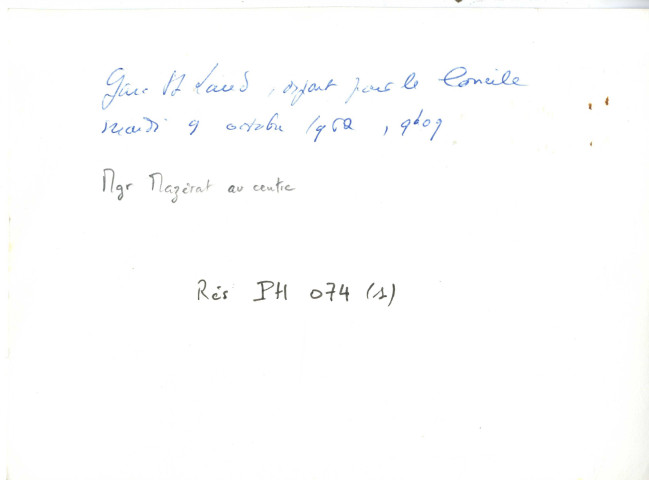 Gare St Laud, départ pour le Concile
mardi 9 octobre 1962, 9h09
Mgr Mazérat au centre
Rés PH 074 (1)